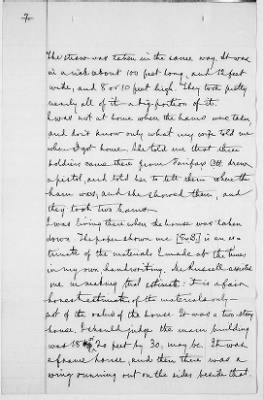 7
The straw was taken in the same way. It was
in a rick about 100 feet long, and 12 feet
wide, and 8 or 10 feet high. They took pretty
nearly all of it – a big portion of it.
I was not at home when the hams were taken,
and don't know only what my wife told me
when I got home. She told me that three
soldiers came there from Fairfax CH. drew
a pistol, and told her to tell them where the
ham was, and she showed them, and
they took two hams.
I was living there when the house was taken
down. The paper shown me [Ex B.] is an es-
timate of the materials I made at the time
in my own handwriting. Lee Russell assisted
me in making that estimate. It is a fair
honest estimate of the materials only –
not of the value of the house. It was a two-story
house. I should judge the main building
was 18 or 20 feet by 30, may be. It was
a frame house, and then there was a
wing running out on the sides beside that.